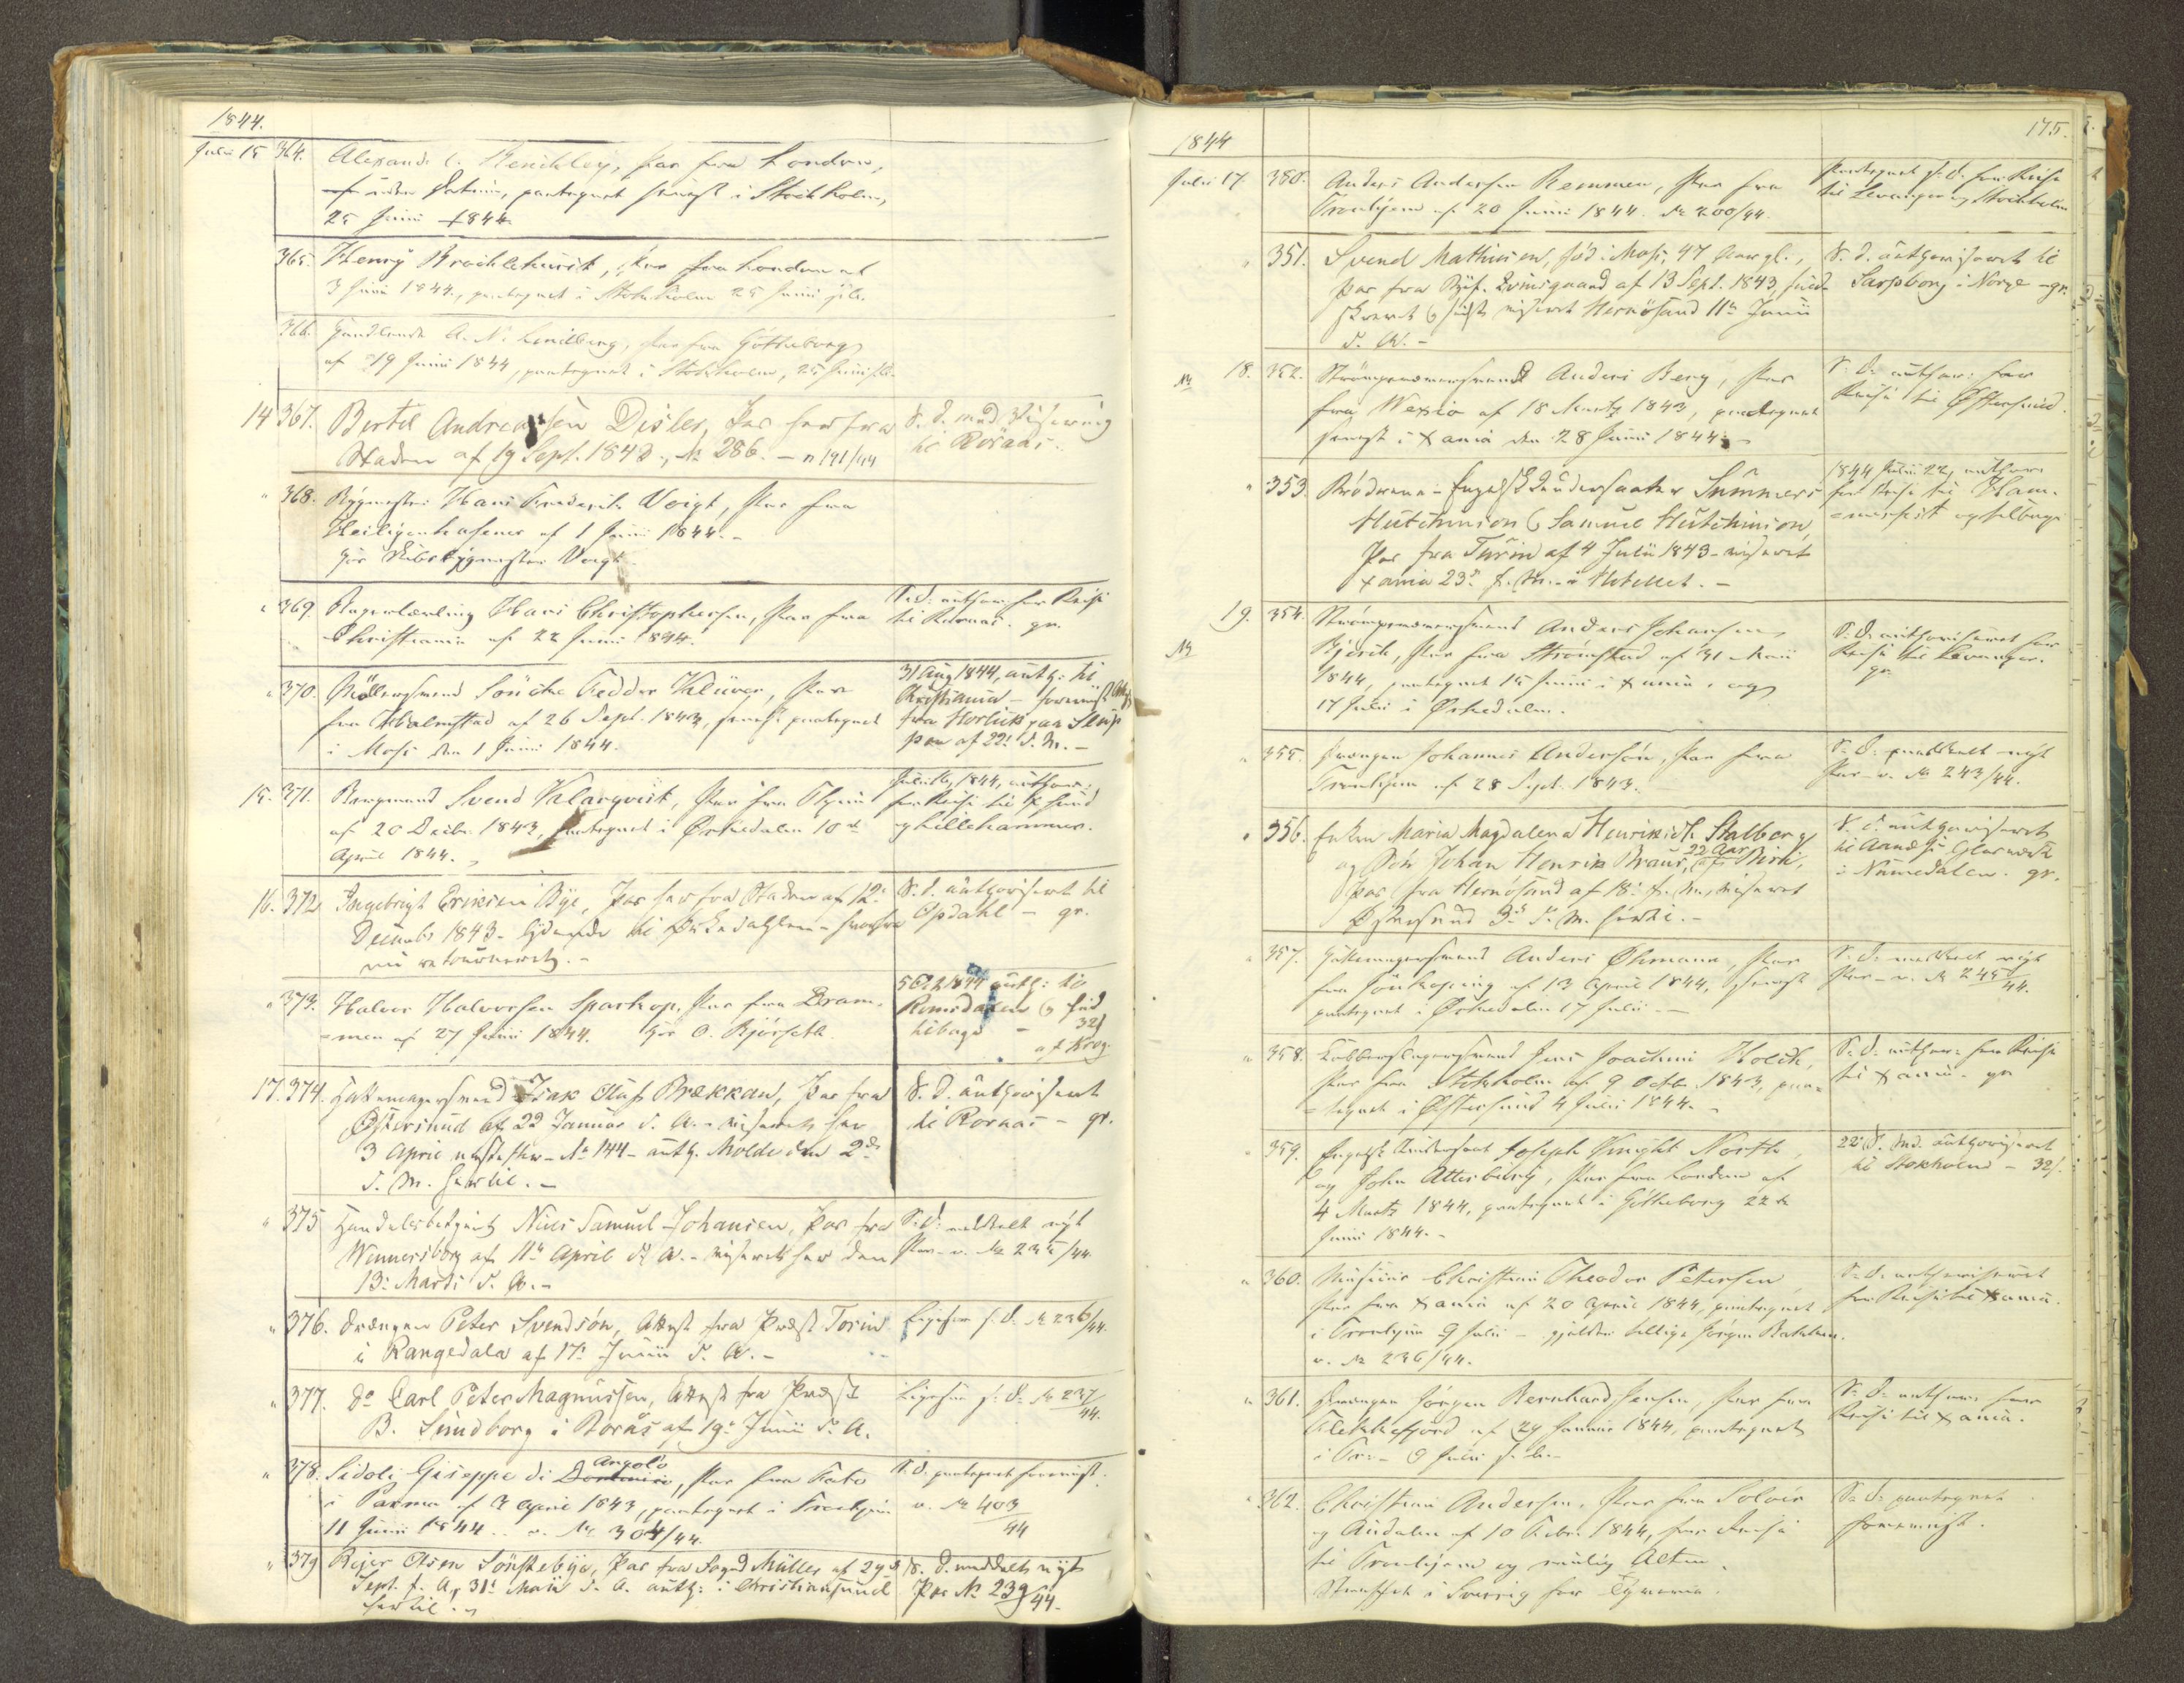 1844.
Julii 15 364. Alexand. C. Benchley, Pas fra London,
uden Datum, paategnet senest i Stockholm,
25 Junii 1844.
365. Henry Brocklehurst, Pas fra London af
3 Junii 1844, paategnet i Stokholm 25 Junii
366. Handlende A. N. Lindberg, Pas fra Götheborg
af 19 Junii 1844, paategnet i Stokholm, 25 Junii
14 367. Bertel Andreassen Disler, Pas her fra
Staden af 19 Sept. 1843, № 286. - n 191/44
S. D. med Visering
til Röraas.
" 368. Rygmester Hans Frederik Voigt, Pas fra
Heiligenhafen af 1 Junii 1844. -
hos Skibsbygmester Voigt.
" 369. Bagerlærling Hans Christophersen, Pas fra
Christiania af 22 Junii 1844.
S. D. author. for Reise
til Röraas. gr.
" 370. Møllersvend Söncke Fedder Klüver, Pas
fra Halmstad af 26 Sept. 1843, senest paategnet
i Moss den 1 Junii 1844.
31 Aug 1844, auth: til
Christiania -
fra
Pas af 22. d. M. -
15. 371. Bergmand Svend Klarqvist, Pas fra
af 20 Decbr. 1843, paategnet i Örkedalen 10de
April 1844.
Julii 16, 1844, author.
for Reise til
og Lillehammer.
16. 372 Ingebrigt Eriksen Bye, Pas her fra Staden af 12
Decembr 1843. lydende til Örkedahlen -
nu retourneret. -
S. D. authoriseret til
Opdahl - gr.
" 373. Halvor Halvorsen Sparkop, Pas fra Dram-
men af 27 Junii 1844. hos O. Bjørseth
5 Oct 1844 auth: til
Romsdalen &
tilbage - 32/
17. 374. Hattemagersvend Isak Oluf Brækkan, Pas fra
Östersund af 22 Januar d. A. - viseret her
3 April - № 144 - auth. Molde den 2de
d. M. hertil. -
S. D. authoriseret
til Roraas - gr.
" 375 Handelsbetjent Niels Samuel Johansen, Pas fra
Wennersborg af 11te April d. A. - viseret her den
13. Marts d. A. -
S. D. meddeelt nyt
Pas - v. № 235/44
" 376. Drængen Peter Svendsön, Attest fra Præst Torin
i Rangedala af 17. Junii d. A. -
Ligesom s. D. № 236/44.
" 377. Do Carl Peter Magnussen, Attest fra Præst
B. Sundborg i Borås af 19. Junii d. A.
Ligesom s. D. № 237/44.
" 378. Sidoli, Giseppe di Angolo, Pas fra
i Parma af 3 April 1843, paategnet i Trondhjem
11 Junii 1844. v. № 304/44.
S. D. paategnet
v. № 403/44
" 379 Reier Olsen Sönstebye, Pas fra Foged Müller af 29
Sept. f. A., 31. Maii d. A. auth: i Christiansund
hertil.
S. D. meddeelt nyt
Pas № 239/44.
175.
1844
Julii 17. 380. Anders Andersen Remmen, Pas fra
Trondhjem af 20 Junii 1844. № 200/44.
Paategnet s. D. for Reise
til Levanger og Stockholm
" 351. Svend Mathiesen, fød i Moss, 47 Aar gl.,
Pas fra af 13 Sept. 1843,
& sidst viseret Hernösand 11te Junii
d. A. -
S. D. authoriseret til
Sarpsborg i Norge - gr.
NB 18. 352. Strømpevæversvend Anders Berg, Pas
fra Wexiö af 18 Martz 1843, paategnet
senest i Xania den 28 Junii 1844. -
S. D. author: for
Reise til Østersund.
" 353. Brødrene - Engelsk Undersaatter Summers
Hutchinson & Samuel Hutchinson,
Pas fra Turin af 4 Julii 1843 - viseret
Xania 23. f. M. - i Hotellet. -
1844 Julii 22, author.
for Reise til Ham-
merfest og tilbage
NB 19. 354. Strømpevæversvend Anders Johansen
Björck, Pas fra Strömstad af 31 Maii
1844, paategnet 15 Junii i Xania, og
17 Julii i Örkedalen.
S. D. authoriseret for
Reise til Levanger.
gr.
" 355. Drængen Johannes Andersön, Pas fra
Trondhjem af 28 Sept. 1843.
S. D. meddeelt nyt
Pas - v. № 243/44.
" 356. Enken Maria Magdalena Henriksdr. Stalberg
og Sön Johan Henrik Braus, 22 Aar,
Pas fra Hernösand af 18. f. M., viseret
Østersund 3. d. M. hertil. -
S. D. authoriseret
til Glasværk
i Numedalen. gr.
" 357. Hattemagersvend Anders Öhmann, Pas
fra Jönkoping af 13 April 1844, senest
paategnet i Örkedalen 17 Julii. -
S. D. meddeelt nyt
Pas - v. № 245/44.
" 358. Kobberslagersvend Jens Joachim Holck,
Pas fra Stokholm af 9 Octbr. 1843, paa-
tegnet i Østersund 4 Julii 1844. -
S. D. author. for Reise
til Xania. gr
" 359. Engelsk Undersaat Joseph Knight North,
og John Atterbury, Pas fra London af
4 Martz 1844, paategnet i Götheborg 22 de
Junii 1844. -
22. d. Md. authoriseret
til Stokholm - 32/.
" 360. Musicus Christian Theodor Petersen,
Pas fra Xania af 20 April 1844, paategnet
i Trondhjem 9 Julii - gjelder tillige Jörgen
v. № 236/44.
S. D. authoriseret
for Reise til Xania.
" 361. Drængen Jörgen Bernhard Jensen, Pas fra
Flekkefjord af 29 Januar 1844, paategnet
i Tr. - 9 Julii s. A. -
S. D. author. for
Reise til Xania.
" 362. Christian Andersen, Pas fra Solöer
og Audalen af 10 Febr. 1844, for Reise
til Trondhjem og muligt Alten.
Straffet i Sverrig for Tyverie.
S. D. paategnet